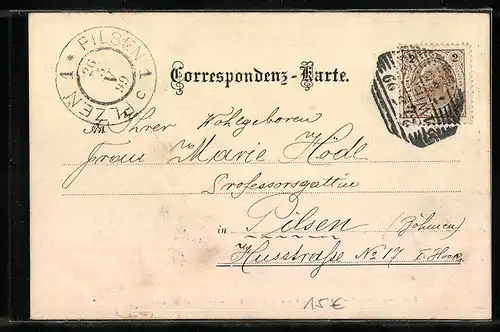 PILSEN 1 * PLZEŇ 1
26 V 99
C
Correspondenz-Karte.
2 2
99
An Ihrer Wohlgeboren
Frau Marie Hödl
Professorsgattin
in Pilsen (Böhmen)
Husstraße No 17 I. Stock
15 €